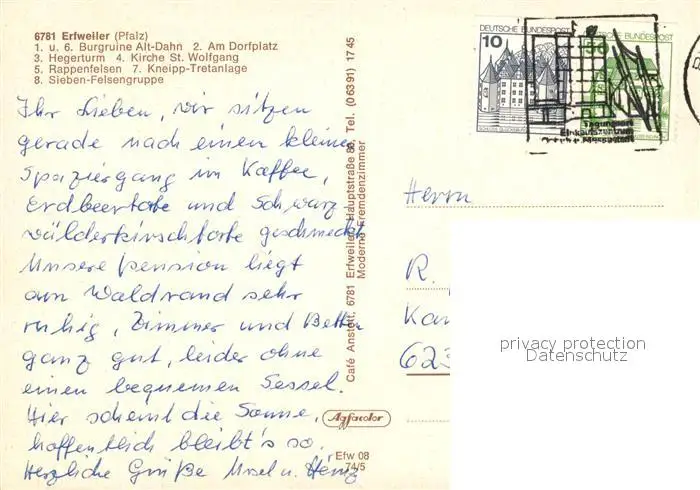 6781 Erfweiler (Pfalz)
1. u. 6. Burgruine Alt-Dahn 2. Am Dorfplatz
3. Hegerturm 4. Kirche St. Wolfgang
5. Rappenfelsen 7. Kneipp-Tretanlage
8. Sieben-Felsengruppe
Ihr Lieben, wir sitzen
gerade nach einen kleinen
Spaziergang im Kaffee,
Erdbeertorte und Schwarz
wälderkirschtorte geschmeckt
Unsere Pension liegt
am Waldrand sehr
ruhig, Zimmer und Betten
ganz gut, leider ohne
einen bequemen Sessel.
Hier scheint die Sonne,
hoffentlich bleibt's so.
Herzliche Grüße Ursel u. Heinz
Café Anstett, 6781 Erfweiler, Hauptstraße 86, Tel. (06391) 1745
Moderne Fremdenzimmer
Agfacolor
Efw 08
74/5
DEUTSCHE BUNDESPOST
10
SCHLOSS GLÜCKSBURG
DEUTSCHE BUNDESPOST
50
Einkaufszentrum
Herrn
R.
623
privacy protection
Datenschutz